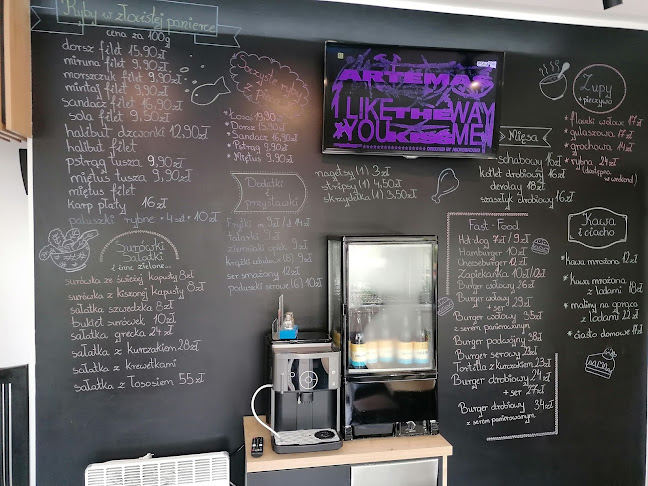 Ryby w złocistej panierce
cena za 100g
dorsz filet 15,90zł
miruna filet 9,90zł
morszczuk filet 9,90zł
mintaj filet 9,90zł
sandacz filet 16,90zł
sola filet 9,90zł
halibut dzwonki 12,90zł
halibut filet
pstrąg tusza 9,90zł
miętus tusza 9,90zł
miętus filet
karp płaty 16zł
paluszki rybne 4szt 10zł
Surówki
Sałatki
i inne zielone...
surówka ze świeżej kapusty 8zł
surówka z kiszonej kapusty 8zł
sałatka szwedzka 8zł
bukiet surówek 10zł
sałatka grecka 24zł
sałatka z kurczakiem 28zł
sałatka z krewetkami
sałatka z łososiem 55zł
z pieca
Łosoś 19,90
Dorsz 15,90
Sandacz 16,90
Pstrąg 9,90
Miętus 9,90
Dodatki
i
przystawki
Frytki m 9zł / d 14zł
talarki
ziemniaki opiek. 9zł
krążki cebulowe (8) 9zł
ser smażony 12zł
poduszki serowe (6) 10zł
nagetsy (1) 3zł
stripsy (1) 4,50zł
skrzydełka (1) 3,50zł
ARTEMAS
I LIKE THE WAY
YOU KISS ME
Mięsa
schabowy 16zł
kotlet drobiowy 16zł
devolay 18zł
szaszłyk drobiowy 16zł
Zupy
z pieczywem
* flaczki wołowe 17zł
* gulaszowa 17zł
* grochowa 14zł
* rybna 24zł
(dostępna
w weekend)
Fast-Food
Hot dog 7zł / 9zł
Hamburger 10zł
Cheeseburger 12zł
Zapiekanka 10zł/12zł
Burger wołowy 26zł
Burger wołowy
+ ser 29zł
Burger wołowy 38zł
z serem panierowanym
Burger podwójny 38zł
Burger serowy 23zł
Tortilla z kurczakiem 23zł
Burger drobiowy 24zł
+ ser 27zł
Burger drobiowy 34zł
z serem panierowanym
Kawa
i ciacho
* kawa mrożona 12zł
* kawa mrożona
z lodami 18zł
* maliny na gorąco
z lodami 22zł
* ciasto domowe 11zł